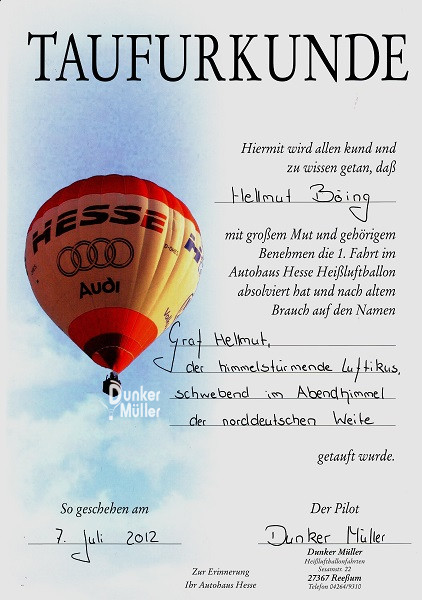 TAUFURKUNDE
Hiermit wird allen kund und
zu wissen getan, daß
Hellmut Böing
mit großem Mut und gehörigem
Benehmen die 1. Fahrt im
Autohaus Hesse Heißluftballon
absolviert hat und nach altem
Brauch auf den Namen
Graf Hellmut,
der himmelstürmende Luftikus,
schwebend im Abendhimmel
der norddeutschen Weite
getauft wurde.
HESSE
Audi
Dunker
Müller
So geschehen am
7. Juli 2012
Der Pilot
Dunker Müller
Dunker Müller
Heißluftballonfahrten
Sesamstr. 22
27367 Reeßum
Telefon 04264/9310
Zur Erinnerung
Ihr Autohaus Hesse